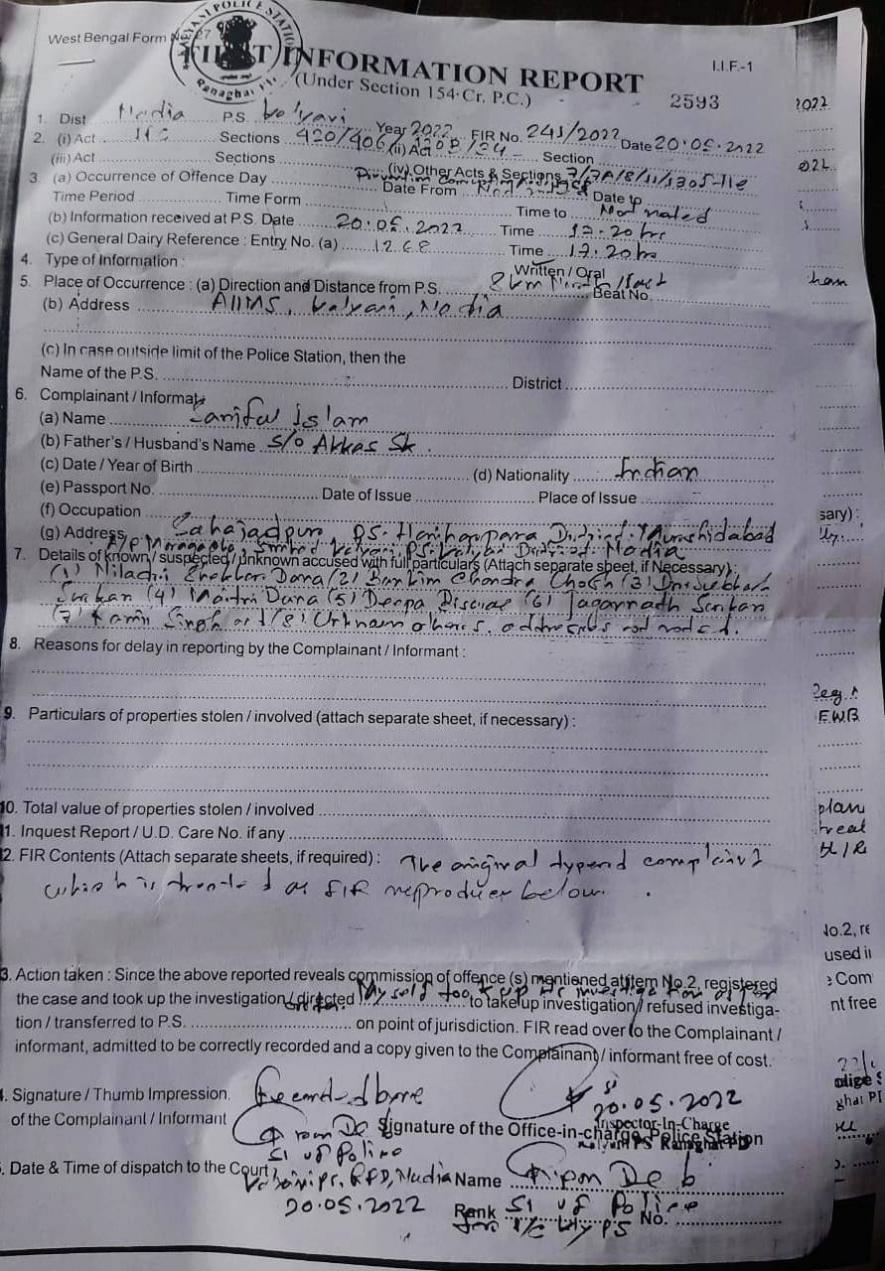 West Bengal Form No. 27
KALYANI POLICE STATION
Ranaghat
FIRST INFORMATION REPORT
I.I.F.-1
(Under Section 154 Cr. P.C.)
2593
1. Dist Nadia P.S. Kalyani Year 2022 FIR No. 241/2022 Date 20.05.2022
2. (i) Act IPC Sections 420/406/120B/34 (ii) Act Section
(iii) Act Sections (iv) Other Acts & Sections 7/7A/8/11/13
3. (a) Occurrence of Offence Day Date From Date to
Time Period Time Form Time to Not noted
(b) Information received at P.S. Date 20.05.2022 Time 17.20 hrs
(c) General Dairy Reference : Entry No. (a) 1268 Time 17.20 hrs
4. Type of Information : Written / Oral
5. Place of Occurrence : (a) Direction and Distance from P.S. 8 km North/East Beat No.
(b) Address AIIMS, Kalyani, Nadia
(c) In case outside limit of the Police Station, then the
Name of the P.S. District
6. Complainant / Informat
(a) Name Sariful Islam
(b) Father's / Husband's Name S/o Akkas Sk.
(c) Date / Year of Birth (d) Nationality Indian
(e) Passport No. Date of Issue Place of Issue
(f) Occupation
(g) Address Sahajadpur, PS. Hariharpara District. Murshidabad
Kalyani PS. Kalyani District. Nadia
7. Details of known / suspected / unknown accused with full particulars (Attach separate sheet, if Necessary) :
(1) Niladri Shekhar Dana (2) Bankim Chandra Ghosh (3) Dr. Subhash
Sarkar (4) Maitri Dana (5) Deepa Biswas (6) Jagannath Sarkar
(7) Ramji Singh and (8) Unknown others. addresses not noted.
8. Reasons for delay in reporting by the Complainant / Informant :
9. Particulars of properties stolen / involved (attach separate sheet, if necessary) :
10. Total value of properties stolen / involved
11. Inquest Report / U.D. Care No. if any
12. FIR Contents (Attach separate sheets, if required) : The original typed complaint
which is treated as FIR reproduce below.
3. Action taken : Since the above reported reveals commission of offence (s) mentioned at item No.2, registered
the case and took up the investigation / directed to take up investigation / refused investiga-
tion / transferred to P.S. on point of jurisdiction. FIR read over to the Complainant /
informant, admitted to be correctly recorded and a copy given to the Complainant / informant free of cost.
20.05.2022
Signature / Thumb Impression
of the Complainant / Informant
Signature of the Office-in-charge, Police Station
Inspector-In-Charge
Kalyani PS Ranaghat PD
SI of Police
Date & Time of dispatch to the Court
20.05.2022
Name Ripon Deb
Rank SI of Police No.
2022
sary) :
plain
treat
No.2, re
used in
Com
nt free